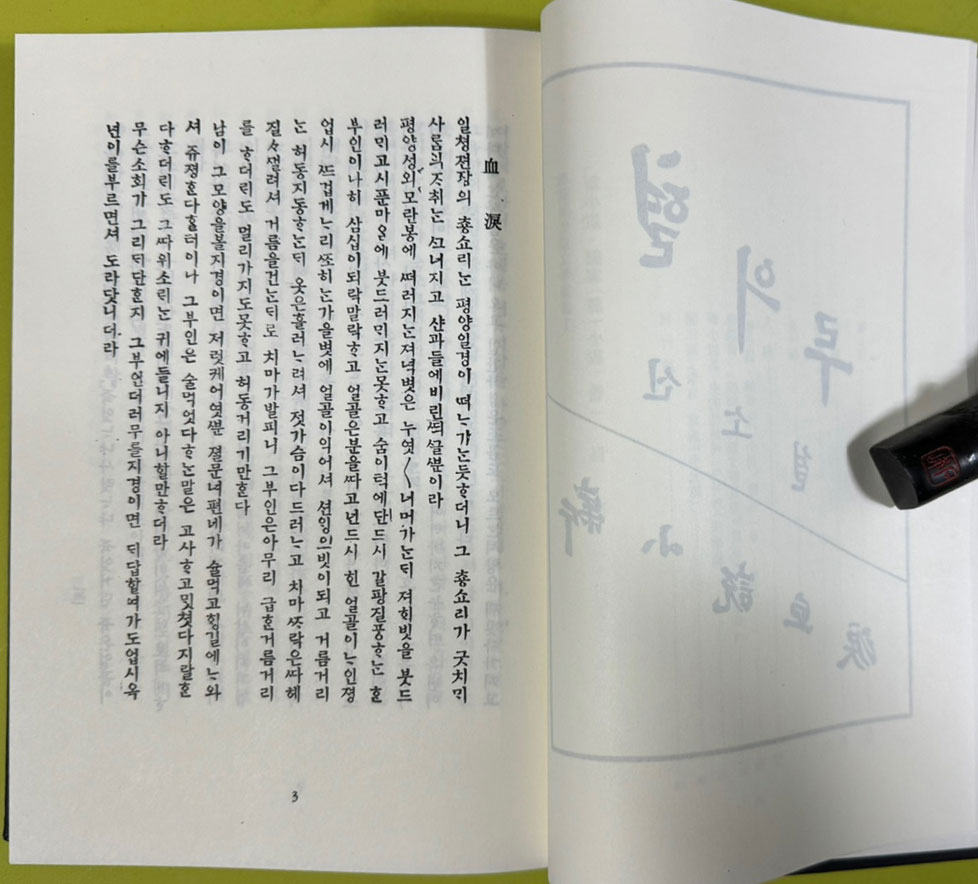 血淚
일쳥젼장의 춍쇼리ᄂᆞᆫ 평양일경이 ᄯᅥᄂᆞ가ᄂᆞᆫ듯ᄒᆞ더니 그 춍쇼리가 긋치ᄆᆡ
사ᄅᆞᆷ의ᄌᆞ취ᄂᆞᆫ ᄭᅳᆫ너지고 샨과들에비린ᄯᅴᄭᅳᆯᄲᅮᆫ이라
평양셩외모란봉에 ᄯᅥ러지ᄂᆞᆫ져녁볏은 누엿〱너머가ᄂᆞᆫᄃᆡ 져ᄒᆡ빗을 붓드
러ᄆᆡ고시푼마ᄋᆞᆷ에 붓드러ᄆᆡ지ᄂᆞᆫ못ᄒᆞ고 숨이턱에단드시 갈팡질풍ᄒᆞᄂᆞᆫ ᄒᆞᆫ
부인이나히 삼십이되락말락ᄒᆞ고 얼골은분을ᄯᅡ고넌드시 흰 얼골이ᄂᆞ인졍
업시 ᄯᅳ겁게ᄂᆞ리ᄶᅩ히ᄂᆞᆫ가을볏에 얼골이익어셔 션ᄋᆡᆼ의빗이되고 거름거리
ᄂᆞᆫ 허동지동ᄒᆞᄂᆞᆫᄃᆡ 옷은흘러ᄂᆞ려셔 젓가슴이다드러ᄂᆞ고 치마ᄶᆞ락은ᄯᅡ헤
질〻ᄭᅳᆯ려셔 거름을건ᄂᆞᆫᄃᆡ로 치마가발피니 그부인은아무리 급ᄒᆞᆫ거름거리
를 ᄒᆞ더ᄅᆡ도 멀리가지도못ᄒᆞ고 허동거리기만ᄒᆞᆫ다
남이 그모양을볼지경이면 져럿케어엿ᄲᅮᆫ 졀문녀편네가 슐먹고ᄒᆡᆼ길에ᄂᆞ와
셔 쥬졍ᄒᆞᆫ다ᄒᆞᆯ터이나 그부인은 슐먹엇다ᄒᆞᄂᆞᆫ말은 고사ᄒᆞ고밋쳣다지랄ᄒᆞᆫ
다ᄒᆞ더ᄅᆡ도 그ᄯᅡ위소리ᄂᆞᆫ 귀에들니지 아니할만ᄒᆞ더라
무슨소회가 그리ᄃᆡ단ᄒᆞᆫ지 그부인더러무를지경이면 ᄃᆡ답할여가도업시옥
년이를부르면셔 도라닷니더라
3